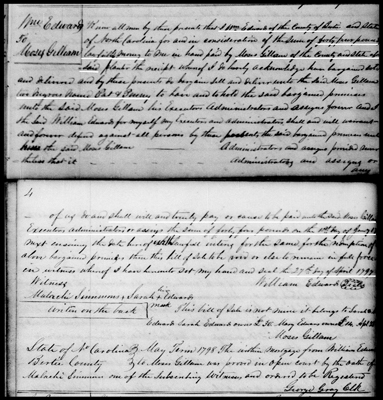 Wm Edwards
To
Moses Gillam
Know all men by these presents that I Wm Edwards of the County of Bertie and State
of North Carolina for and in consideration of the Sum of forty five pounds
to me in hand paid by Moses Gillam of the County and State
the receipt whereof I do hereby acknowledge have bargained sold
and delivered and by these presents do bargain sell and deliver unto the said Moses Gillam
two Negroes to have and to hold the said bargained premises
unto the said Moses Gillam his Executors Administrators and assigns forever and I
the said William Edwards for myself my Executors and administrators shall and will warrant
and forever defend against all persons by these presents the said bargained premises unto
the said Moses Gillam Administrators and assigns provided never
theless that if Administrators and assigns or
any
4
of us do and shall will and truly pay or cause to be paid unto the said Moses Gillam
Executors administrators or assigns the sum of forty four pounds on the 1st day of January
next ensuing the date hereof for the same for the redemption of
above bargained premises, then this bill of sale to be void or else to remain in full force
in witness whereof I have hereunto set my hand and seal the 27th day of April 1798
William Edwards
Witness
Malachi Simmons, Sarah her Edwards
mark
Written on the back
This bill of Sale is not mine it belongs to Sarah
Edwards Sarah Edwards owns Mary Edwards owns
Moses Gillam
State of No Carolina May Term 1798 The within mortgage from William Edwards
Bertie County to Moses Gillam was proved in open court by the oath of
Malachi Simmons one of the Subscribing Witnesses and ordered to be Registered
George Gray Clk